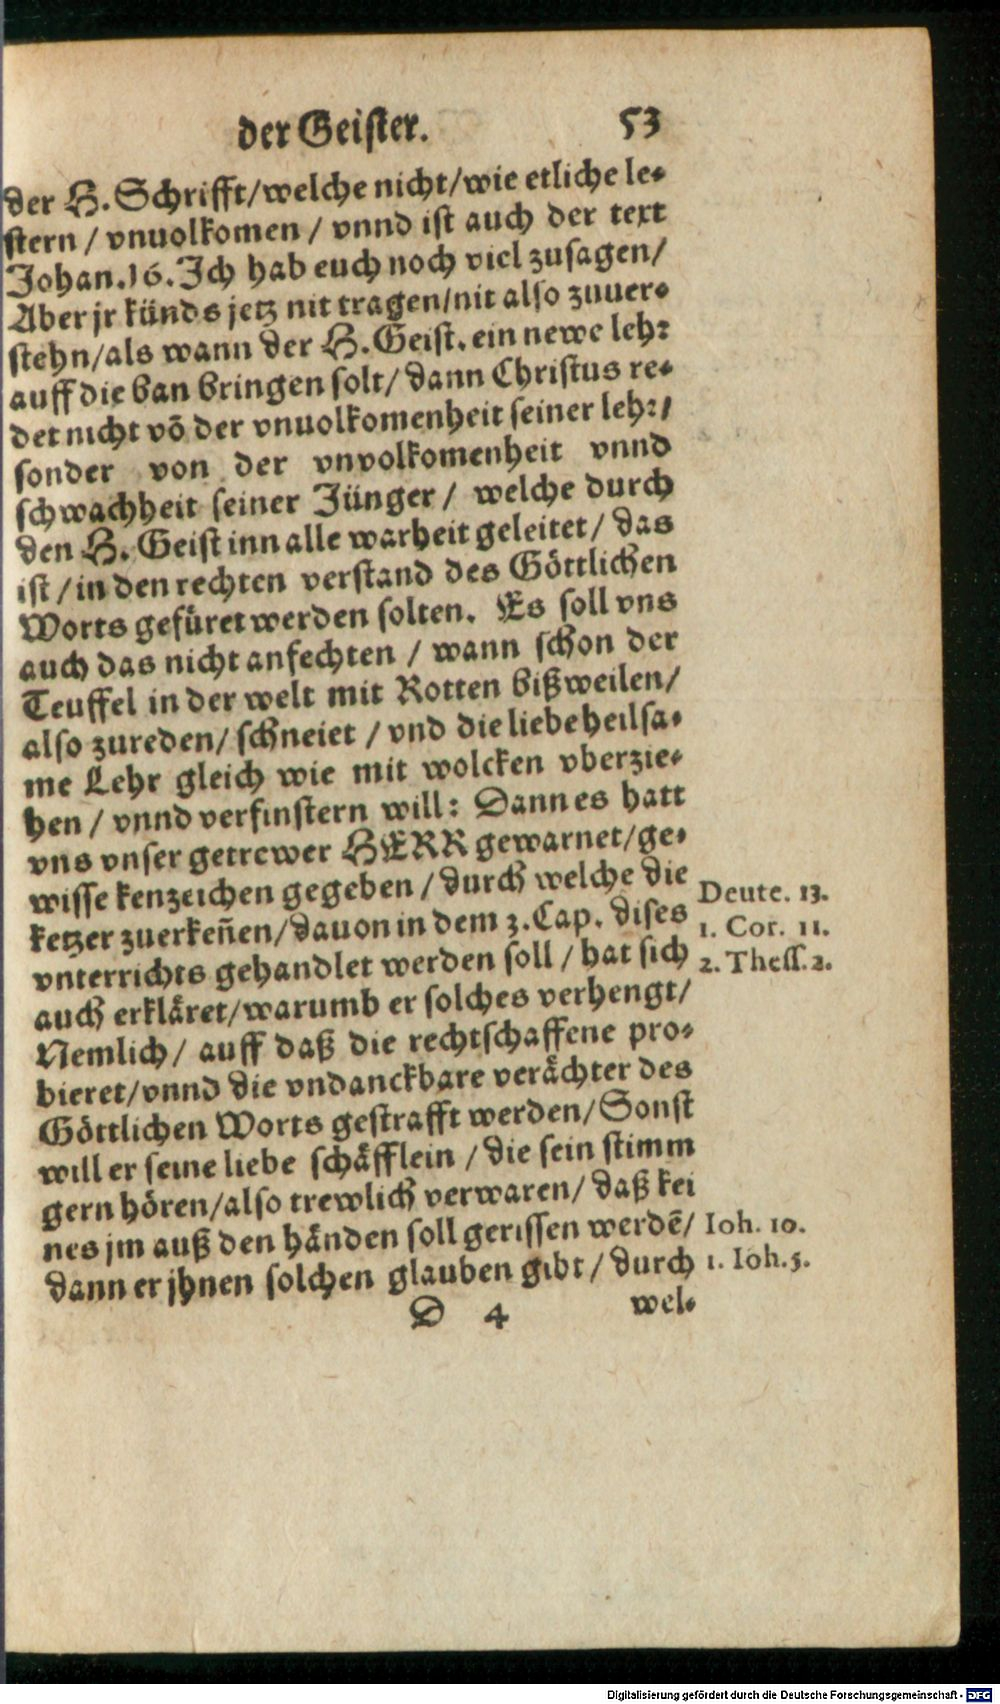 der Geister. 53
der H. Schrifft/welche nicht/wie etliche le-
stern / vnuolkomen / vnnd ist auch der text
Johan.16. Ich hab euch noch viel zusagen/
Aber jr künds jetz nit tragen/nit also zuuer-
stehn/als wann der H. Geist. ein newe lehr
auff die ban bringen solt/ dann Christus re-
det nicht võ der vnuolkomenheit seiner lehr/
sonder von der vnvolkomenheit vnnd
schwachheit seiner Jünger / welche durch
den H. Geist inn alle warheit geleitet/ das
ist / in den rechten verstand des Göttlichen
Worts gefüret werden solten. Es soll vns
auch das nicht anfechten / wann schon der
Teuffel in der welt mit Rotten bißweilen/
also zureden/ schneiet / vnd die liebe heilsa-
me Lehr gleich wie mit wolcken vberzie-
hen / vnnd verfinstern will: Dann es hatt
vns vnser getrewer HERR gewarnet/ge-
wisse kenzeichen gegeben / durch welche die
ketzer zuerkeñen/dauon in dem 3. Cap. dises
vnterrichts gehandlet werden soll / hat sich
auch erkläret/warumb er solches verhengt/
Nemlich/ auff daß die rechtschaffene pro-
bieret/vnnd die vndanckbare verächter des
Göttlichen Worts gestrafft werden/Sonst
will er seine liebe schäfflein / die sein stimm
gern hören/also trewlich verwaren/ daß kei
nes jm auß den händen soll gerissen werdẽ/
dann er jhnen solchen glauben gibt / durch
D 4 wel-
Deute. 13.
1. Cor. 11.
2. Thess. 2.
Ioh. 10.
1. Ioh. 5.
Digitalisierung gefördert durch die Deutsche Forschungsgemeinschaft - DFG